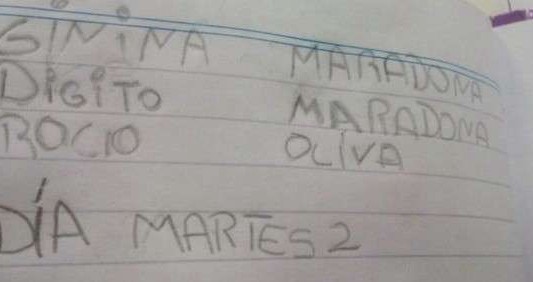 GININA MARADONA
DIGITO MARADONA
ROCIO OLIVA
DÍA MARTES 2